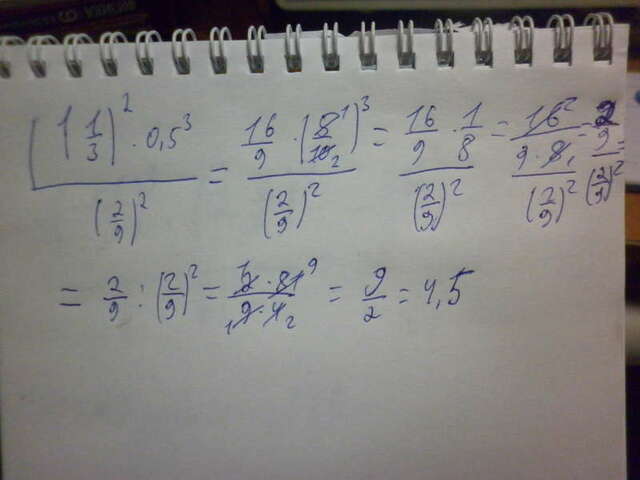 (1 1/3)^2 · 0,5^3 / (2/9)^2 = 16/9 · (5^1/10_2)^3 / (2/9)^2 = 16/9 · 1/8 / (2/9)^2 = 16^2 / 9 · 8_1 / (2/9)^2 = 2/9 / (2/9)^2 =
= 2/9 : (2/9)^2 = ^12 · 81^9 / _19 · 4_2 = 9/2 = 4,5